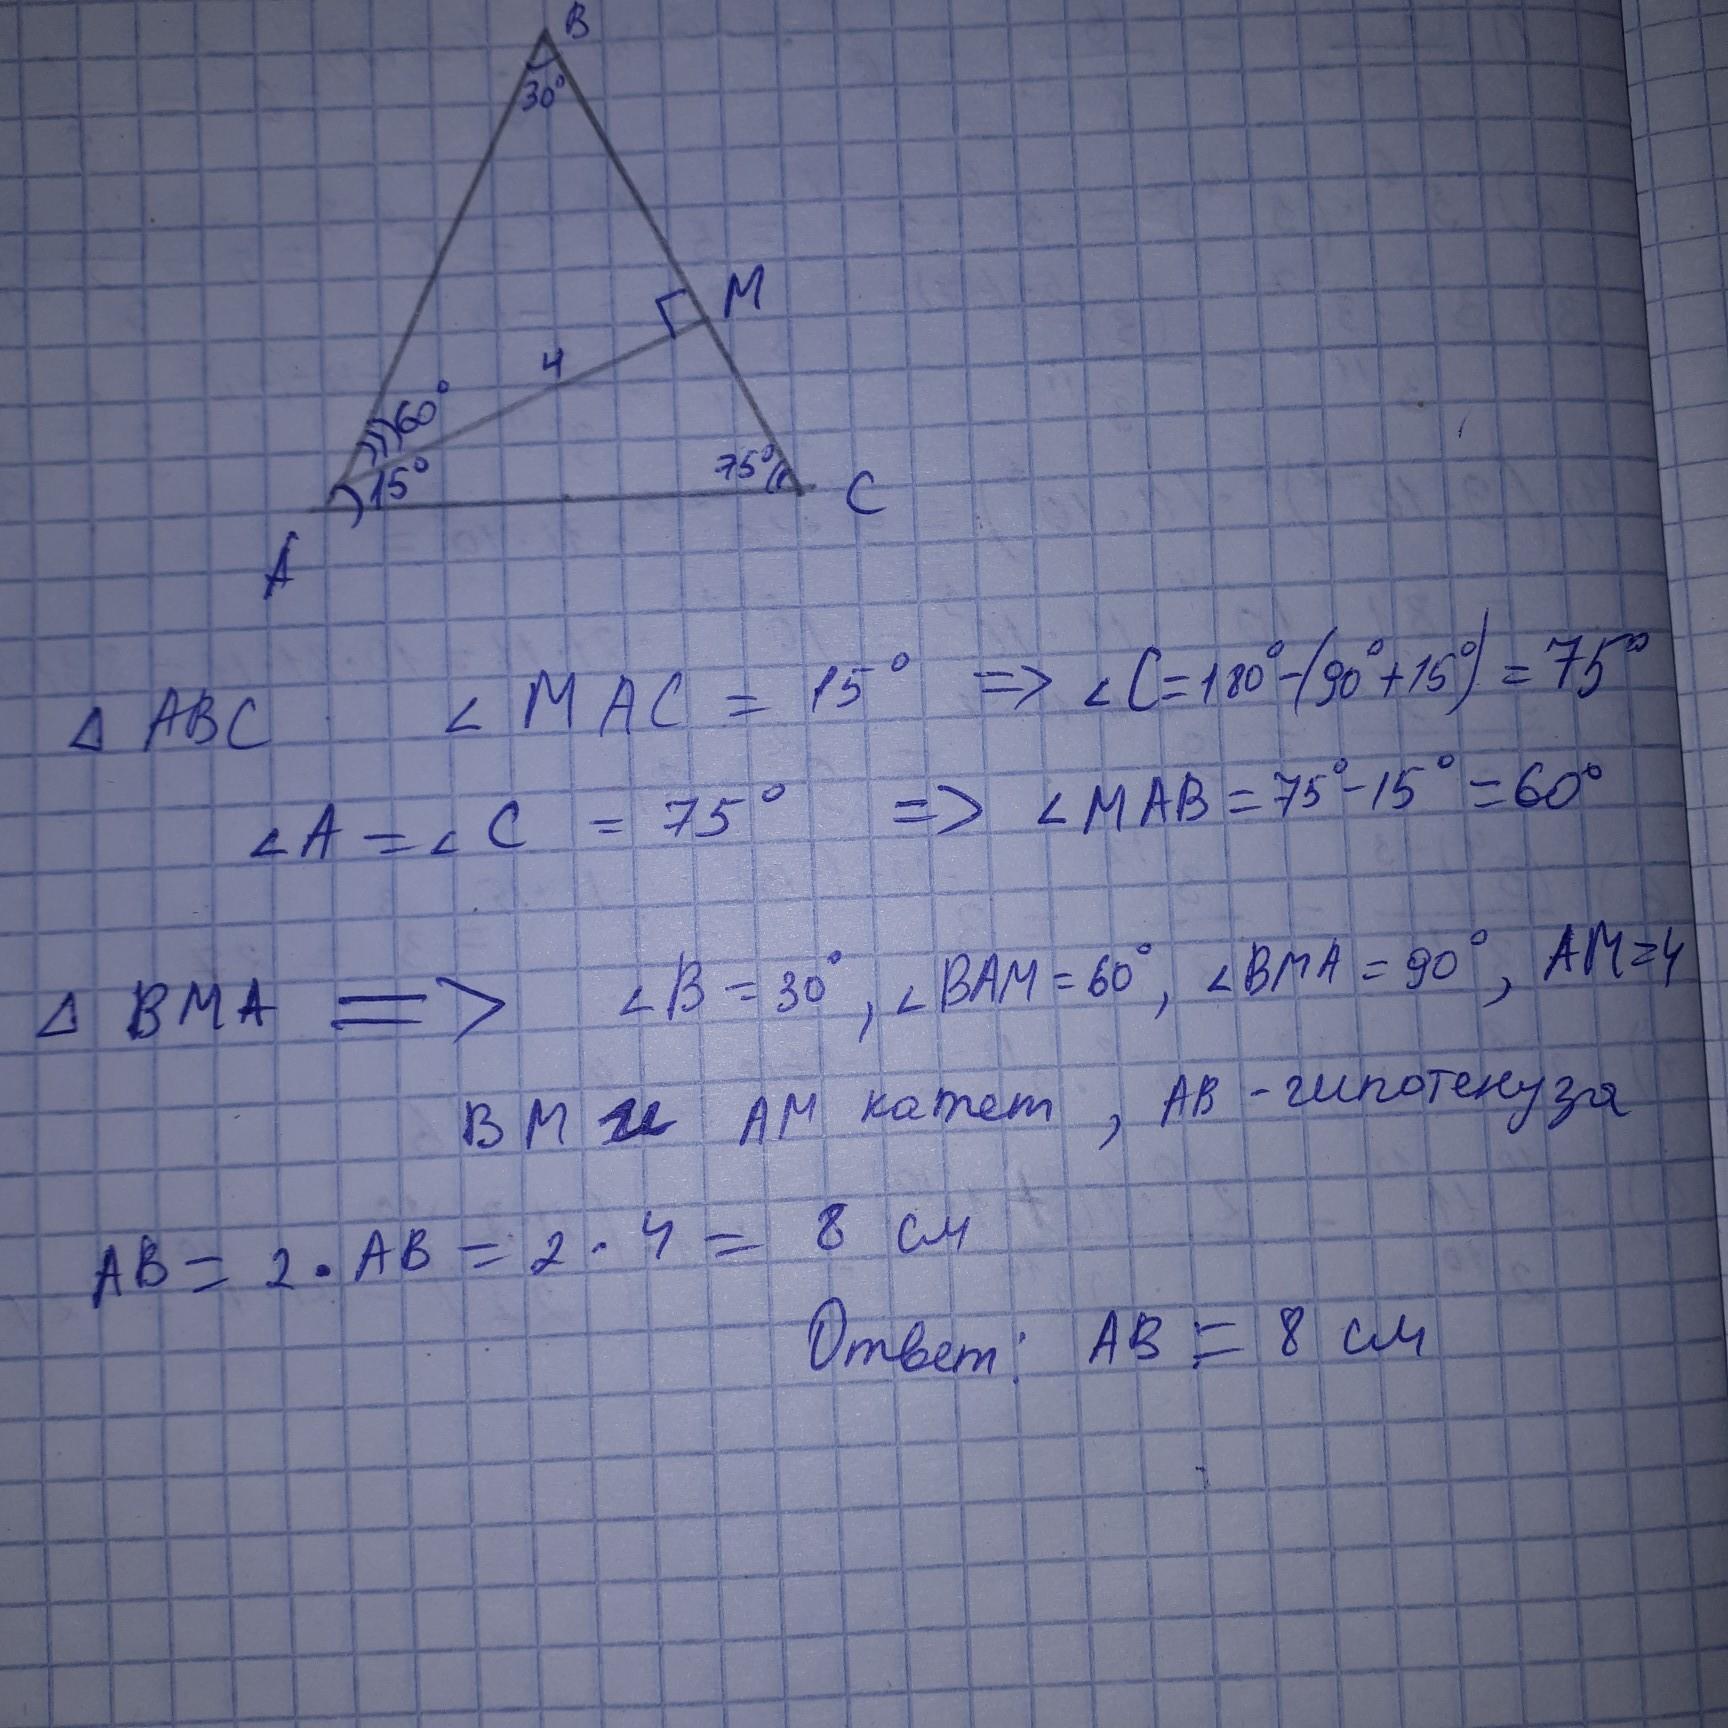 B
30°
M
4
60°
15°
75°
C
A
Δ ABC ∠MAC = 15° => ∠C=180°-(90°+15°)=75°
∠A=∠C = 75° => ∠MAB=75°-15°=60°
Δ BMA => ∠B=30°, ∠BAM=60°, ∠BMA=90°, AM=4
BM и AM катет, AB - гипотенуза
AB = 2·AB = 2·4 = 8 см
Ответ: AB = 8 см